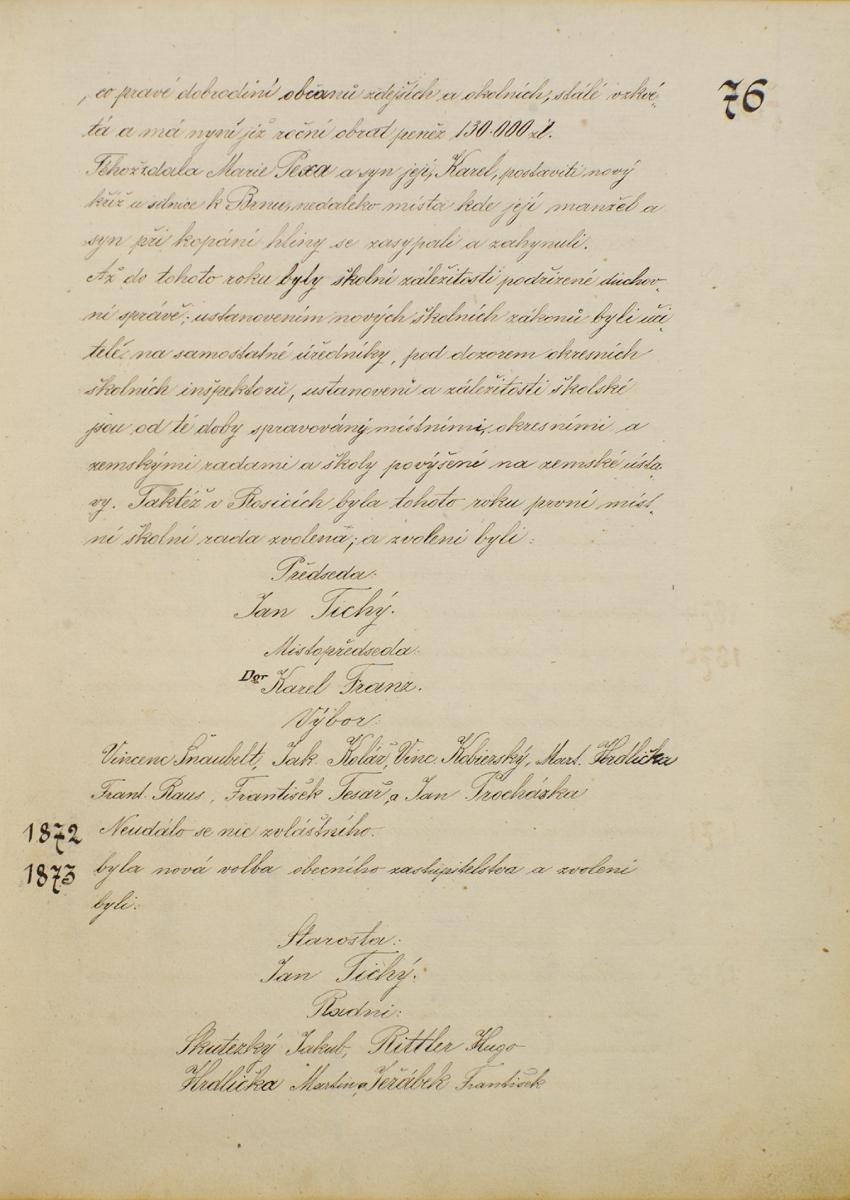 76
, co pravé dobrodiní občanů zdejších a okolních, stálé vzkvé-
tá a má nyní již roční obrat peněz 130.000 zl.
Téhož zdala Marie Pexa a syn její, Karel, postaviti nový
kříž u silnice k Brnu, nedaleko místa kde její manžel a
syn při kopání hlíny se zasypali a zahynuli.
Až do tohoto roku byly školní záležitosti podřízené duchov-
ní správě; ustanovením nových školních zákonů byli uči-
telé na samostatné úředníky, pod dozorem okresních
školních inšpektorů, ustanoveni a záležitosti školské
jsou od té doby spravovány místními, okresními a
zemskými radami a školy povýšení na zemské ústa-
vy. Taktéž v Rosicích byla tohoto roku první míst-
ní školní rada zvolená; a zvoleni byli:
Předseda:
Jan Tichý.
Místopředseda:
Dor Karel Franz.
Výbor:
Vincenc Šnaubelt, Jak. Kolář, Vinc. Kobierský, Mart. Hrdlička
Frant. Raus, František Tesař, a Jan Procházka
1872 Neudálo se nic zvláštního.
1873 byla nová volba obecního zastupitelstva a zvolení
byli:
Starosta:
Jan Tichý.
Radní:
Skutezký Jakub, Rittler Hugo
Hrdlička Martin a Jeřábek František